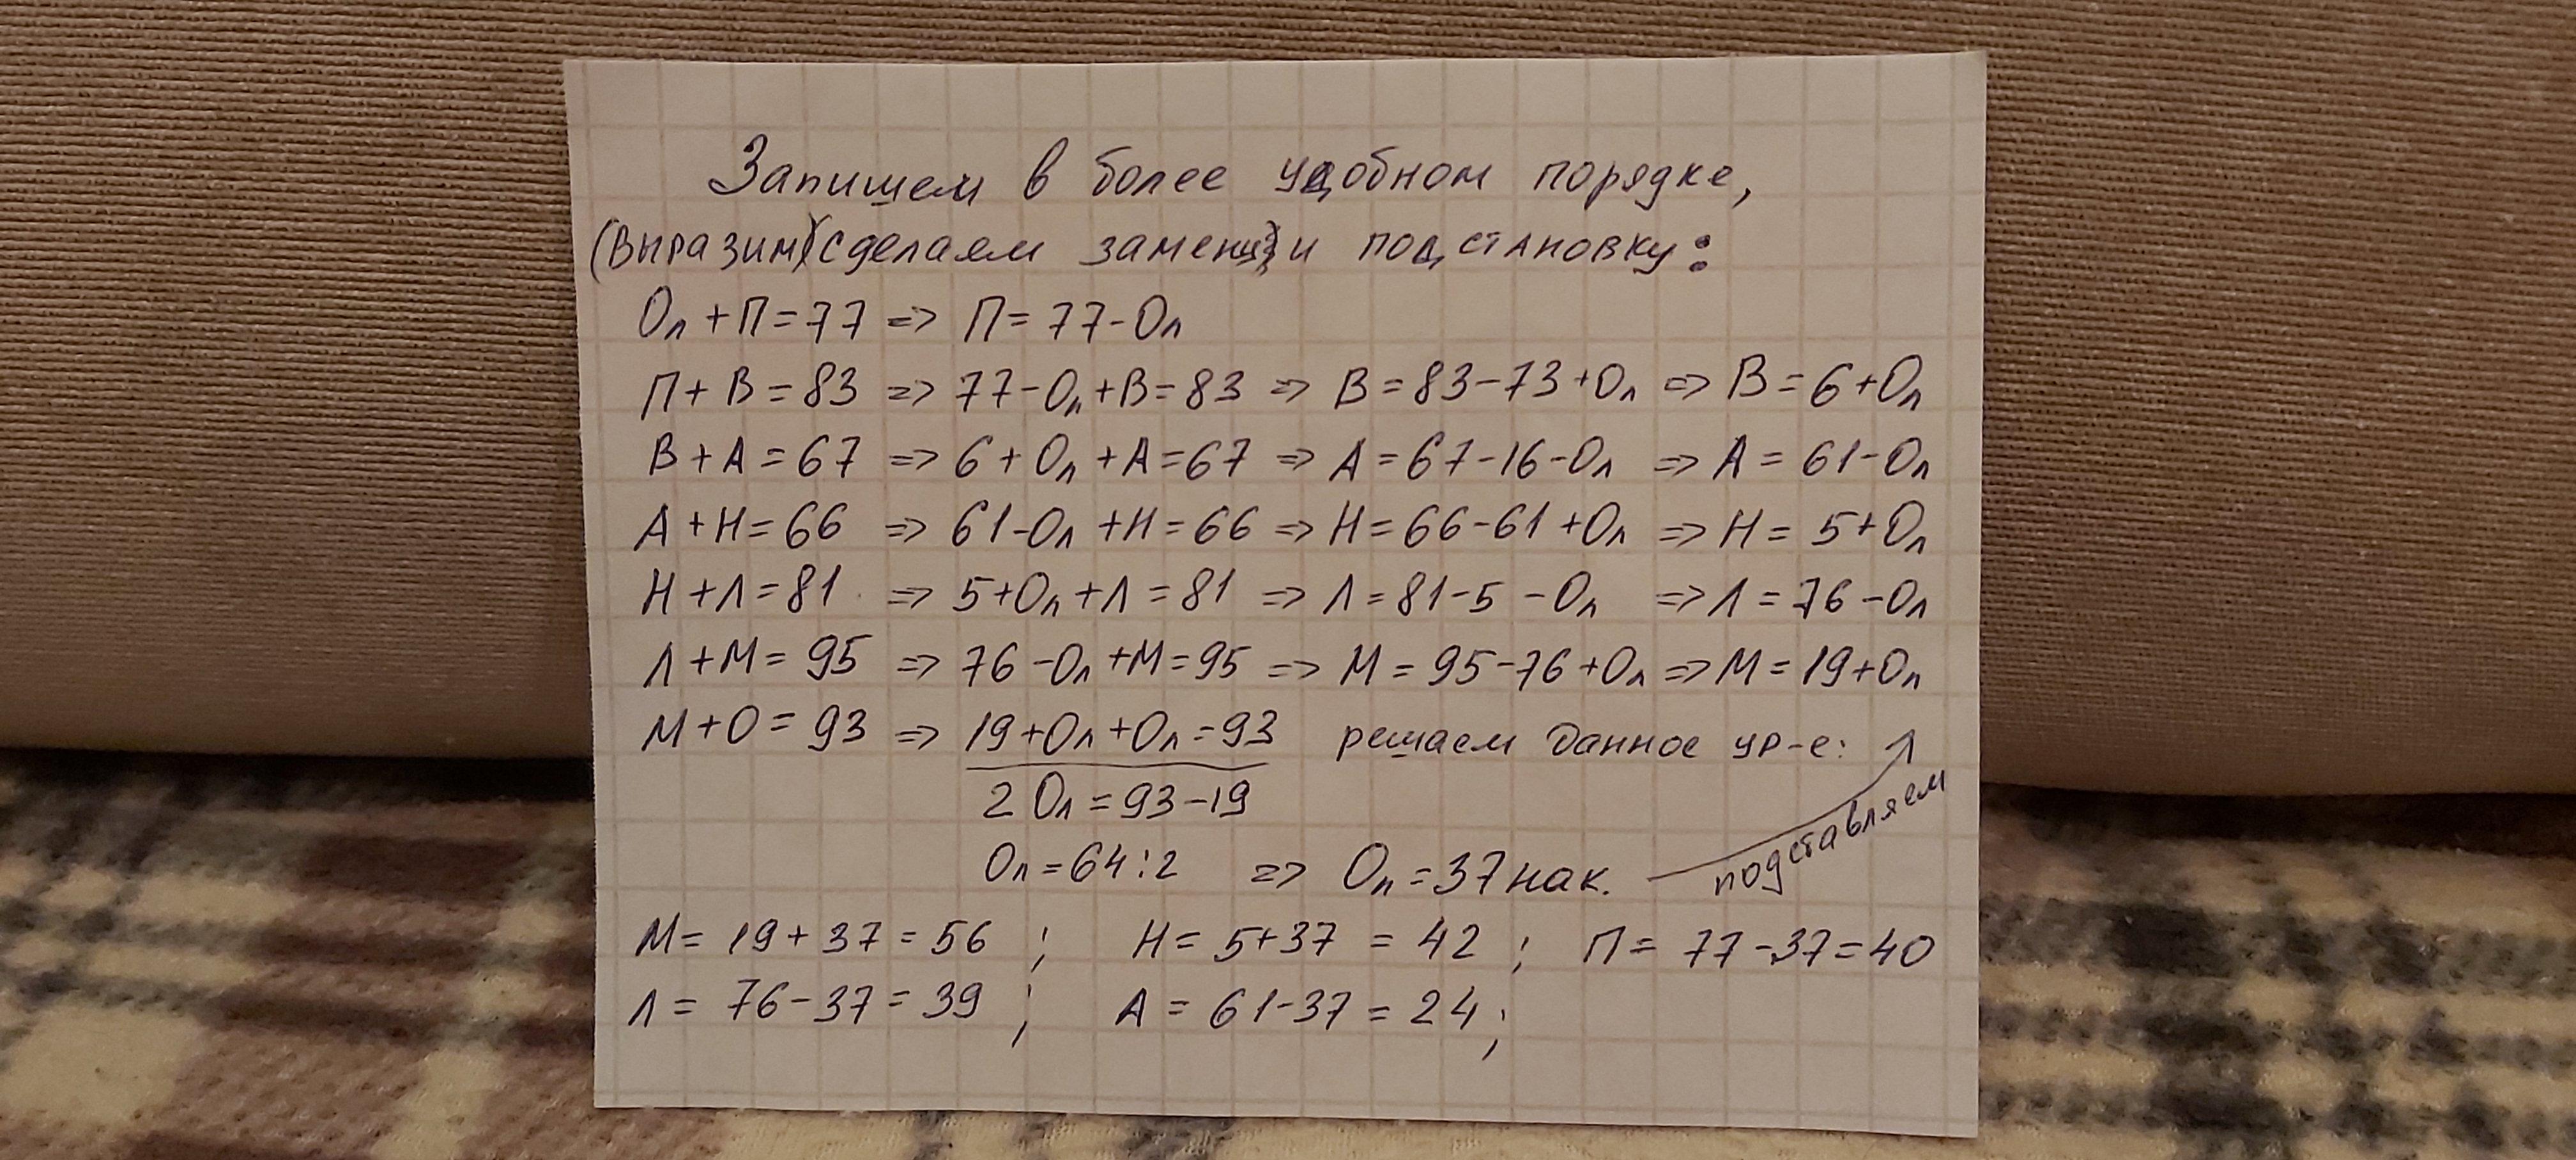 Запишем в более удобном порядке,
(выразим)(сделаем замену) и подстановку:
Ол + П = 77 => П = 77 - Ол
П + В = 83 => 77 - Ол + В = 83 => В = 83 - 73 + Ол => В = 6 + Ол
В + А = 67 => 6 + Ол + А = 67 => А = 67 - 16 - Ол => А = 61 - Ол
А + Н = 66 => 61 - Ол + Н = 66 => Н = 66 - 61 + Ол => Н = 5 + Ол
Н + Л = 81 => 5 + Ол + Л = 81 => Л = 81 - 5 - Ол => Л = 76 - Ол
Л + М = 95 => 76 - Ол + М = 95 => М = 95 - 76 + Ол => М = 19 + Ол
М + О = 93 => 19 + Ол + Ол = 93 решаем данное ур-е:
2 Ол = 93 - 19
Ол = 64 : 2 => Ол = 37 нак. подставляем
М = 19 + 37 = 56 ; Н = 5 + 37 = 42 ; П = 77 - 37 = 40
Л = 76 - 37 = 39 ; А = 61 - 37 = 24 ;